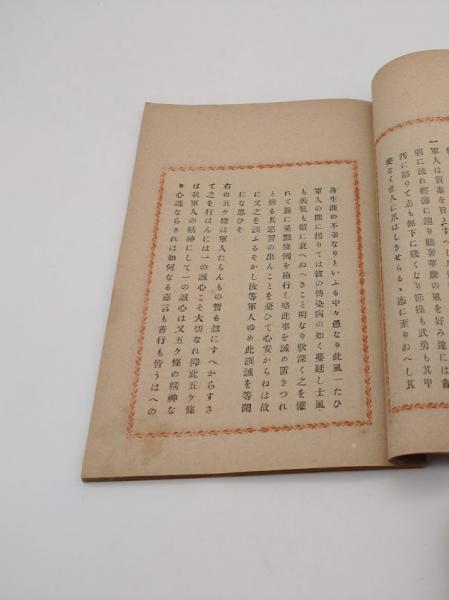 一軍人は質素を旨とすへし凡
弱に流れ輕薄に趨り驕奢華靡の風を好み遂には貪
汚に陷りて志も無下に賤くなり節操も武勇も其甲
斐なく世人に爪はしきせらるゝ迄に至りぬへし其
身生涯の不幸なりといふも中々愚なり此風一たひ
軍人の間に起りては彼の傳染病の如く蔓延し士風
も兵氣も頓に衰へぬへきこと明なり朕深く之を懼
れて曩に免黜條例を施行し略此事を誡め置きつれ
と猶も其惡習の出んことを憂ひて心安からねは故
に又之を訓ふるそかし汝等軍人ゆめ此訓誡を等閒
にな思ひそ
右の五ケ條は軍人たらんもの暫も忽にすへからすさ
て之を行はんには一の誠心こそ大切なれ抑此五ケ條
は我軍人の精神にして一の誠心は又五ケ條の精神な
り心誠ならされは如何なる嘉言も善行も皆うはへの